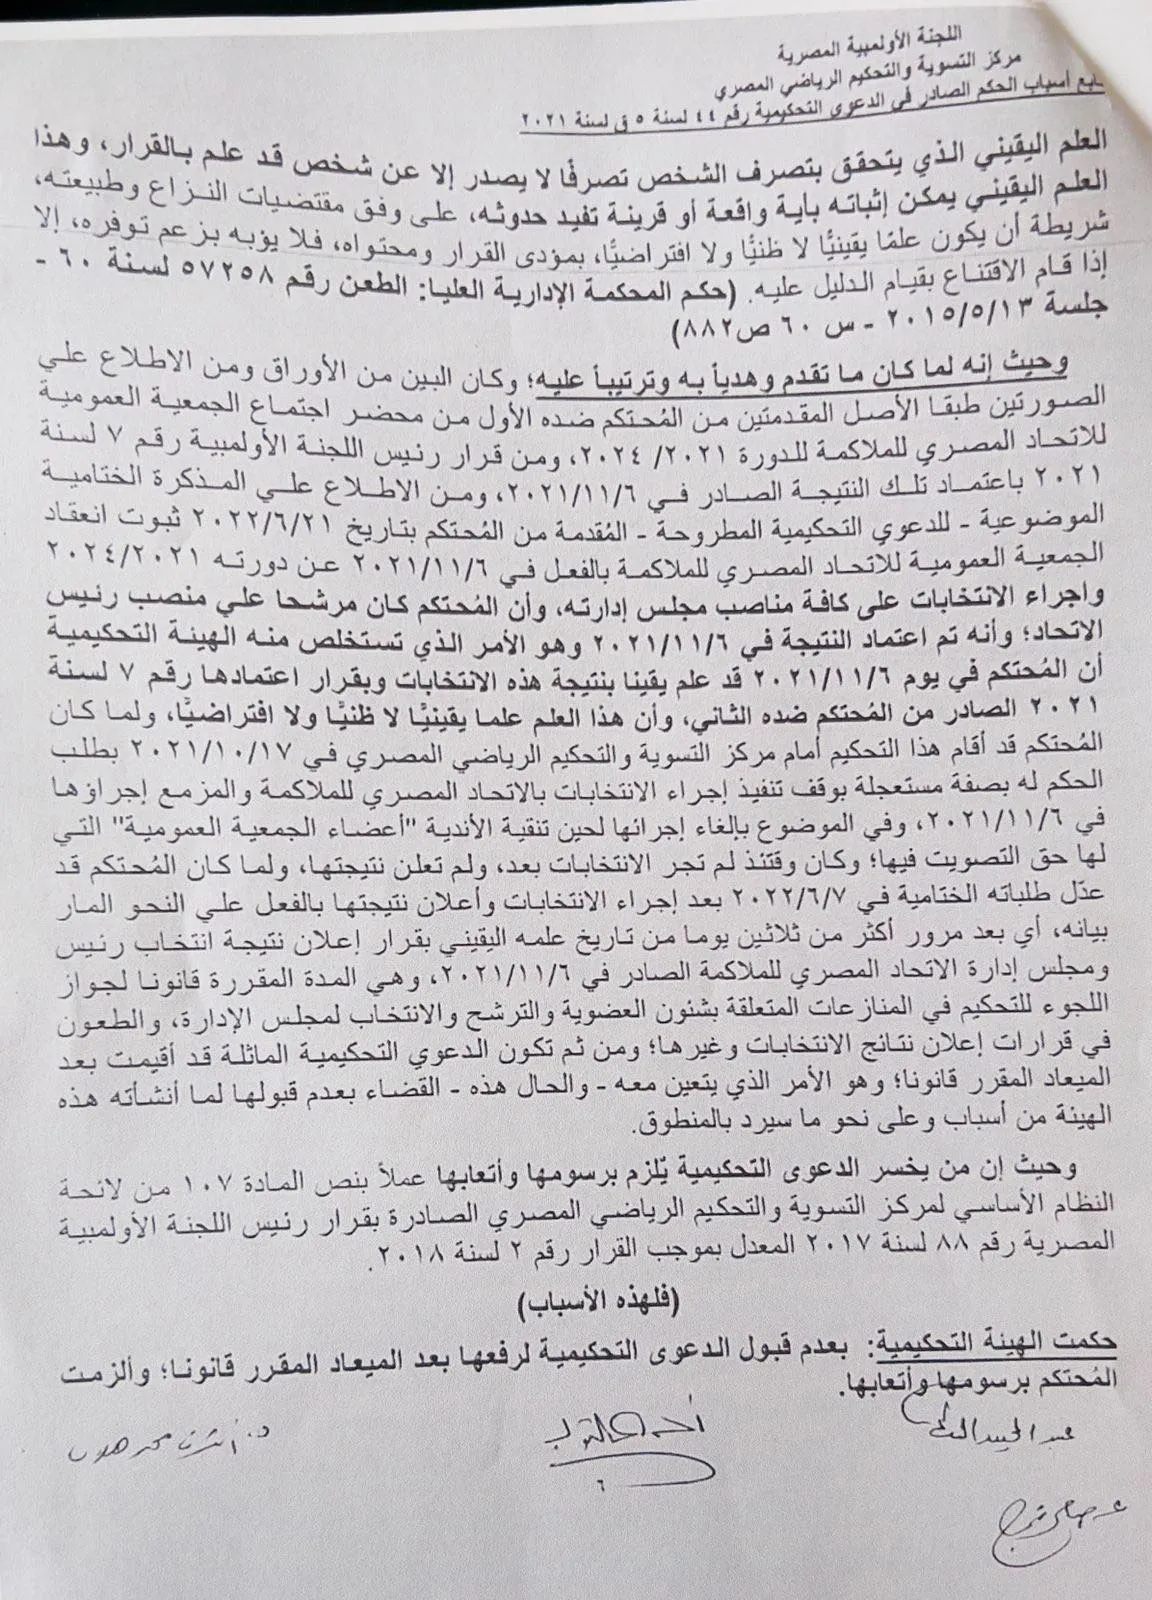 اللجنة الأولمبية المصرية
مركز التسوية والتحكيم الرياضي المصري
تابع أسباب الحكم الصادر في الدعوى التحكيمية رقم ٤٤ لسنة ٥ ق لسنة ٢٠٢١
العلم اليقيني الذي يتحقق بتصرف الشخص تصرفًا لا يصدر إلا عن شخص قد علم بالقرار، وهذا
العلم اليقيني يمكن إثباته بأية واقعة أو قرينة تفيد حدوثه، على وفق مقتضيات النزاع وطبيعته،
شريطة أن يكون علمًا يقينيًّا لا ظنيًّا ولا افتراضيًّا، بمؤدى القرار ومحتواه، فلا يؤبه بزعم توفره، إلا
إذا قام الاقتناع بقيام الدليل عليه. (حكم المحكمة الإدارية العليا: الطعن رقم ٥٧٢٥٨ لسنة ٦٠ -
جلسة ٢٠١٥/٥/١٣ - س ٦٠ ص٨٨٢)
وحيث إنه لما كان ما تقدم وهدياً به وترتيباً عليه؛ وكان البين من الأوراق ومن الاطلاع علي
الصورتين طبقا الأصل المقدمتين من المُحتكم ضده الأول من محضر اجتماع الجمعية العمومية
للاتحاد المصري للملاكمة للدورة ٢٠٢١/ ٢٠٢٤، ومن قرار رئيس اللجنة الأولمبية رقم ٧ لسنة
٢٠٢١ باعتماد تلك النتيجة الصادر في ٢٠٢١/١١/٦، ومن الاطلاع علي المذكرة الختامية
الموضوعية - للدعوي التحكيمية المطروحة - المُقدمة من المُحتكم بتاريخ ٢٠٢٢/٦/٢١ ثبوت انعقاد
الجمعية العمومية للاتحاد المصري للملاكمة بالفعل في ٢٠٢١/١١/٦ عن دورته ٢٠٢٤/٢٠٢١
واجراء الانتخابات على كافة مناصب مجلس إدارته، وأن المُحتكم كان مرشحا علي منصب رئيس
الاتحاد؛ وأنه تم اعتماد النتيجة في ٢٠٢١/١١/٦ وهو الأمر الذي تستخلص منه الهيئة التحكيمية
أن المُحتكم في يوم ٢٠٢١/١١/٦ قد علم يقينا بنتيجة هذه الانتخابات وبقرار اعتمادها رقم ٧ لسنة
٢٠٢١ الصادر من المُحتكم ضده الثاني، وأن هذا العلم علما يقينيًّا لا ظنيًّا ولا افتراضيًّا، ولما كان
المُحتكم قد أقام هذا التحكيم أمام مركز التسوية والتحكيم الرياضي المصري في ٢٠٢١/١٠/١٧ بطلب
الحكم له بصفة مستعجلة بوقف تنفيذ إجراء الانتخابات بالاتحاد المصري للملاكمة والمزمع إجراؤها
في ٢٠٢١/١١/٦، وفي الموضوع بإلغاء إجرائها لحين تنقية الأندية "أعضاء الجمعية العمومية" التي
لها حق التصويت فيها؛ وكان وقتئذ لم تجر الانتخابات بعد، ولم تعلن نتيجتها، ولما كان المُحتكم قد
عدّل طلباته الختامية في ٢٠٢٢/٦/٧ بعد إجراء الانتخابات وأعلان نتيجتها بالفعل علي النحو المار
بيانه، أي بعد مرور أكثر من ثلاثين يوما من تاريخ علمه اليقيني بقرار إعلان نتيجة انتخاب رئيس
ومجلس إدارة الاتحاد المصري للملاكمة الصادر في ٢٠٢١/١١/٦، وهي المدة المقررة قانونا لجواز
اللجوء للتحكيم في المنازعات المتعلقة بشئون العضوية والترشح والانتخاب لمجلس الإدارة، والطعون
في قرارات إعلان نتائج الانتخابات وغيرها؛ ومن ثم تكون الدعوي التحكيمية الماثلة قد أقيمت بعد
الميعاد المقرر قانونا؛ وهو الأمر الذي يتعين معه - والحال هذه - القضاء بعدم قبولها لما أنشأته هذه
الهيئة من أسباب وعلى نحو ما سيرد بالمنطوق.
وحيث إن من يخسر الدعوى التحكيمية يّلزم برسومها وأتعابها عملاً بنص المادة ١٠٧ من لائحة
النظام الأساسي لمركز التسوية والتحكيم الرياضي المصري الصادرة بقرار رئيس اللجنة الأولمبية
المصرية رقم ٨٨ لسنة ٢٠١٧ المعدل بموجب القرار رقم ٢ لسنة ٢٠١٨.
(فلهذه الأسباب)
حكمت الهيئة التحكيمية: بعدم قبول الدعوى التحكيمية لرفعها بعد الميعاد المقرر قانونا؛ وألزمت
المُحتكم برسومها وأتعابها.
٦